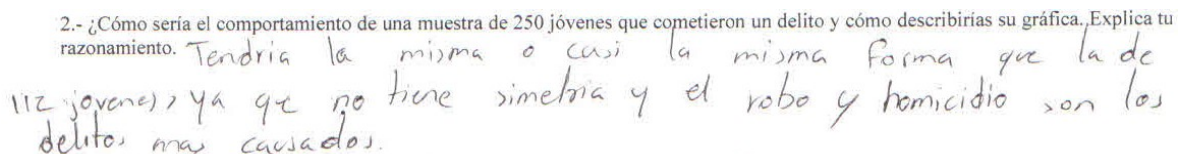 2.- ¿Cómo sería el comportamiento de una muestra de 250 jóvenes que cometieron un delito y cómo describirías su gráfica. Explica tu
razonamiento. Tendria la misma o casi la misma forma que la de
112 jovenes, ya qe no tiene simetria y el robo y homicidio son los
delitos mas causados.